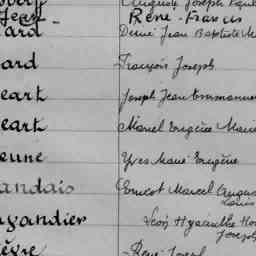 Jean- René-Francis
ard Jean Baptiste M
ard François Joseph
eart Joseph Jean Emmanuel
eart Marcel Eugène Marie
eune Yves Marie Eugène
andais Ernest Marcel Augus
Louis
yandier Léon Hyacinthe
Joseph
èvre René Joseph